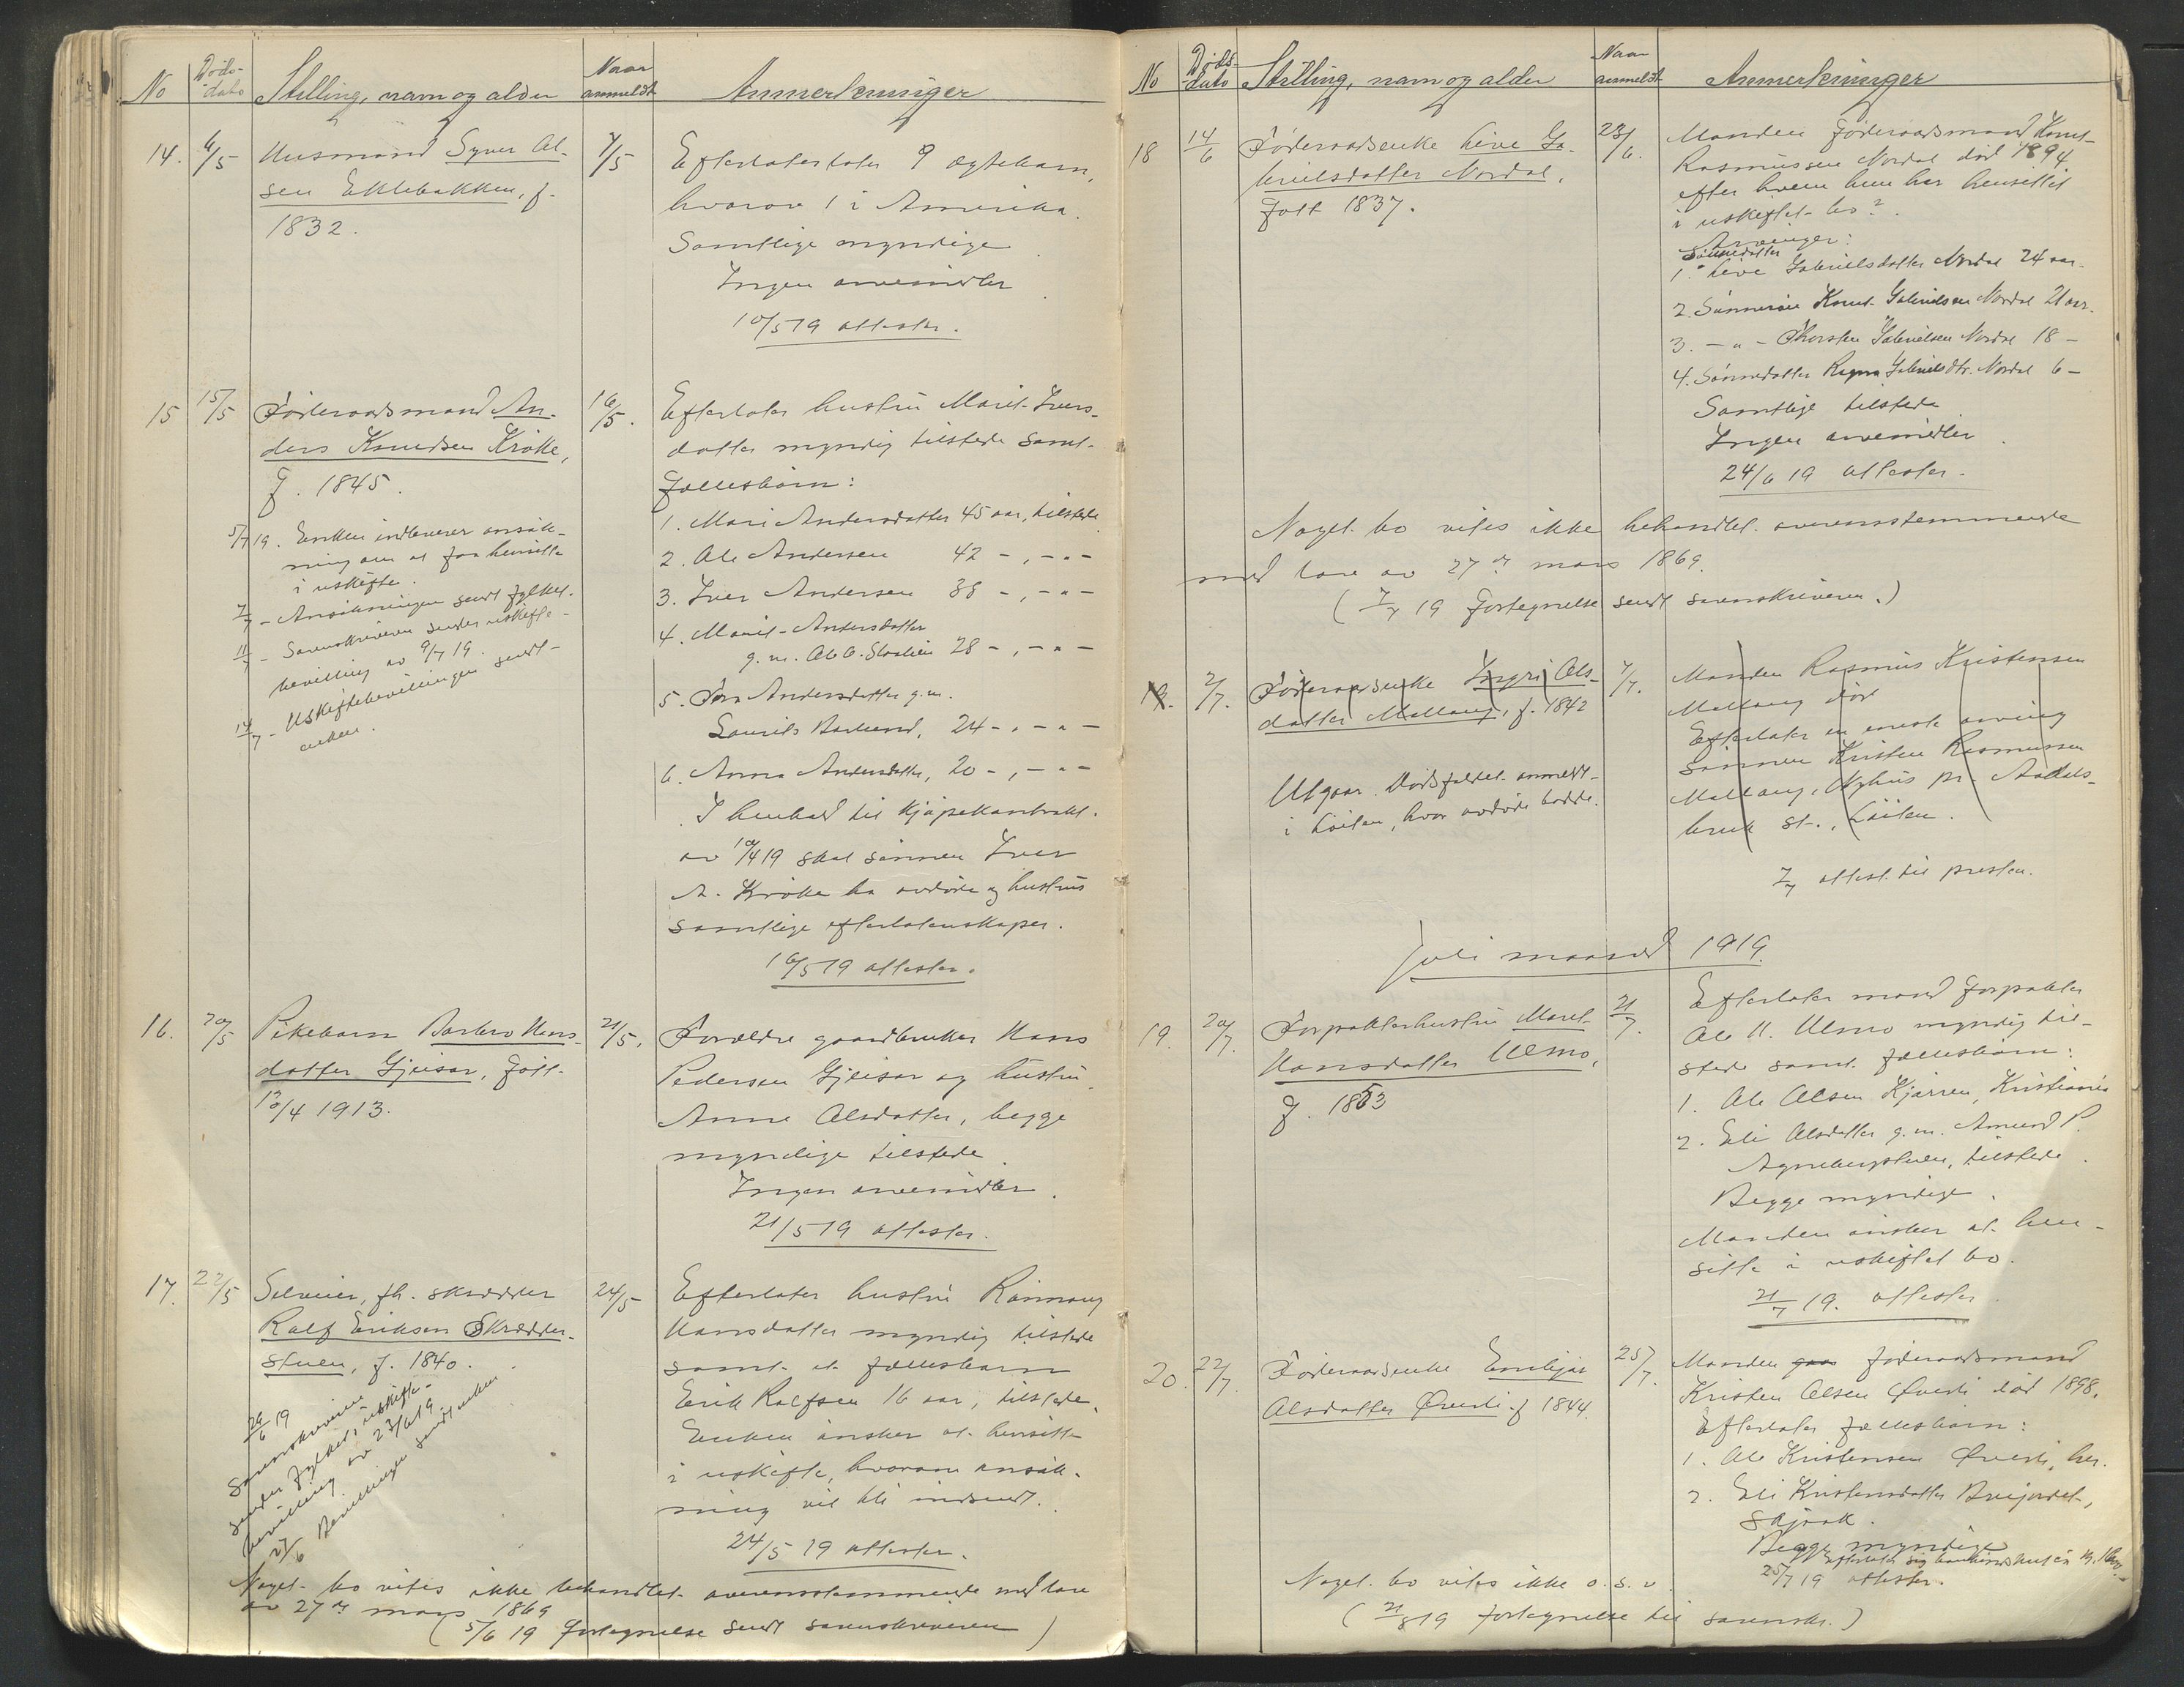 No
Døds-
dato
Stilling, navn og alder
Naar
anmeldt
Anmerkninger
14.
6/5
Husmand Syver Ol-
sen Eklebakken, f.
1832.
7/5
Efterlater 9 egtebarn,
hvorav 1 i Amerika.
Samtlige myndige
Ingen arvemidler
10/5 19 attester.
15
15/5
Føderaadsmand An-
ders Knudsen Kröke,
f. 1845.
5/7 19. Enken indleverer ansøk-
ning om at faa hensitte
i uskifte.
7/7 - Ansøkningen sendt fylket.
11/7 - Sorenskriveren sender uskifte-
bevilling av 9/7 19.
14/7 - Uskiftebevillingen sendt
enken.
16/5.
Efterlater hustru Marit Ivers-
datter myndig tilstede samt
fællesbarn:
1. Mari Andersdatter 45 aar, tilstede
2. Ole Andersen 42 -, - " -
3. Iver Andersen 38 -, - " -
4. Marit Andersdatter
g. m. Ole O. 28 -, - " -
5. Andersdatter g. m.
Laurits 24 -, - " -
6. Anna Andersdatter, 20 -, - " -
I henhold til kjøpekontrakt
av 10/4 19 skal sønnen Iver
A. Kröke ha avdøde og hustrus
samtlige efterlatenskaper.
16/5 19 attester.
16.
20/5
Pikebarn Barbro Hans-
datter Gjeisar, født
13/4 1913.
21/5.
Forældre gaardbruker Hans
Pedersen Gjeisar og hustru
Anne Olsdatter, begge
myndige tilstede.
Ingen arvemidler.
21/5 19 attester.
17.
22/5
Selveier, fh. skrædder
Rolf Eriksen Skrædder-
stuen, f. 1840.
26/6 19
Sorenskriveren
sender fylkets uskifte-
bevilling av 23/6 19.
27/6 Bevillingen sendt enken.
24/5
Efterlater hustru Rönnaug
Hansdatter myndig tilstede
samt et fællesbarn
Erik Rolfsen 16 aar, tilstede.
Enken ønsker at hensitte
i uskifte, hvorom ansøk-
ning vil bli indsendt.
24/5 19 attester.
Noget bo vites ikke behandlet overensstemmende med lov
av 27de mars 1869
(5/6 19 fortegnelse sendt sorenskriveren)
No
Døds-
dato
Stilling, navn og alder
Naar
anmeldt
Anmerkninger
18
14/6
Føderaadsenke Live Ga-
brielsdatter Nordal,
født 1837.
23/6.
Manden føderaadsmand Knut
Rasmussen Nordal død 1894
efter hvem hun har hensittet
i uskiftet bo?
Arvinger:
Sønnedatter
1. Live Gabrielsdatter Nordal 24 aar.
2. Sønnesøn Knut Gabrielsen Nordal 21 aar.
3. - " - Thorsten Gabrielsen Nordal 18 -
4. Sønnedatter Ragna Gabrielsdtr. Nordal 6 -
Samtlige tilstede
Ingen arvemidler.
24/6 19 attester.
Noget bo vites ikke behandlet overensstemmende
med lov av 27de mars 1869.
(7/7 19 fortegnelse sendt sorenskriveren.)
19.
2/7.
Føderaadsenke Ingri Ols-
datter Mallang, f. 1842
Utgaar. Dødsfaldet anmeldt
i Løiten, hvor avdøde bodde.
7/7.
Manden Rasmus Kristensen
Mallang død
Efterlater en eneste arving
sønnen Kristen Rasmussen
Mallang, Nyhus pr. Aadals-
bruk st., Løiten.
7/7 attest til presten.
Juli maaned 1919.
19.
20/7.
Forpakterhustru Marit
Hansdatter Ulmo,
f. 1853
21/7.
Efterlater mand forpakter
Ole H. Ulmo myndig til-
stede samt fællesbarn:
1. Ole Olsen Kjörren, Kristiania
2. Eli Olsdatter g. m. Amund P.
tilstede.
Begge myndige.
Manden ønsker at hen-
sitte i uskiftet bo.
21/7 19. attester
20.
22/7.
Føderaadsenke Embjør
Olsdatter Øverli f 1844.
25/7.
Manden føderaadsmand
Kristen Olsen Øverli død 1898.
Efterlater fællesbarn:
1. Ole Kristensen Øverli, her.
2. Eli Kristensdatter
Skjaak.
Begge myndige
25/7 19 attester.
Noget bo vites ikke o. s. v.
(21/8 19 fortegnelse til sorenskr.)